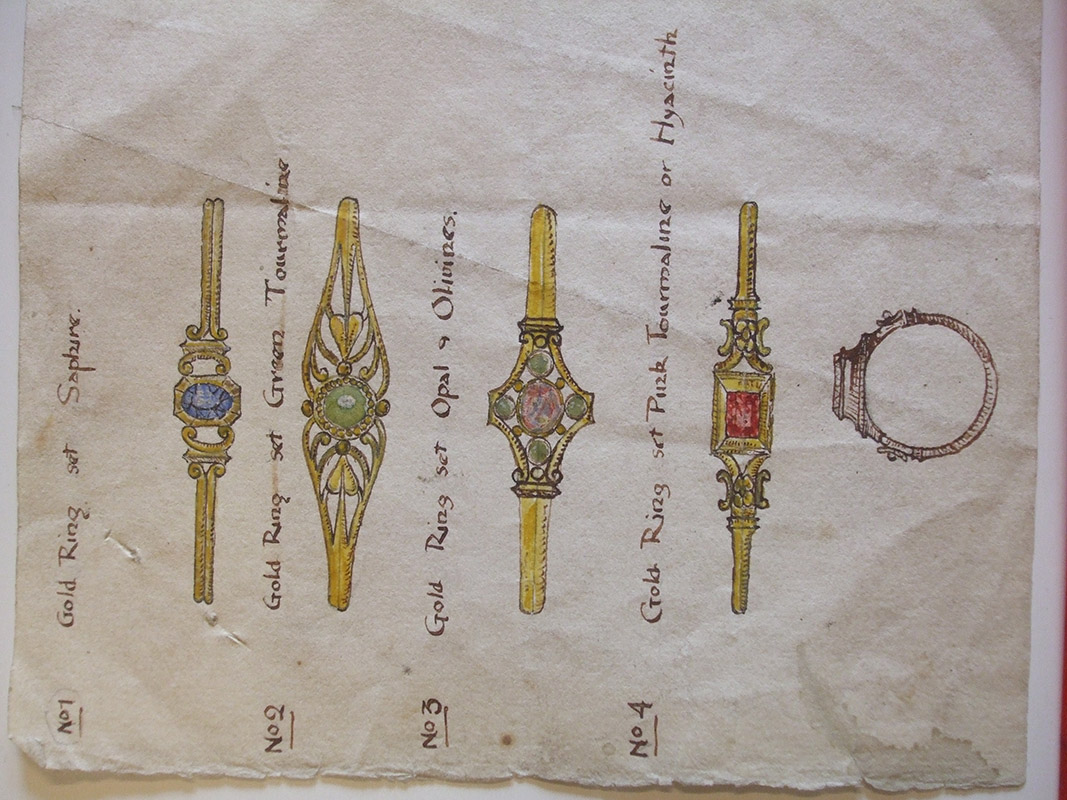 No 1 Gold Ring set Saphire.
No 2 Gold Ring set Green Tourmaline
No 3 Gold Ring set Opal & Olivines.
No 4 Gold Ring set Pink Tourmaline or Hyacinth